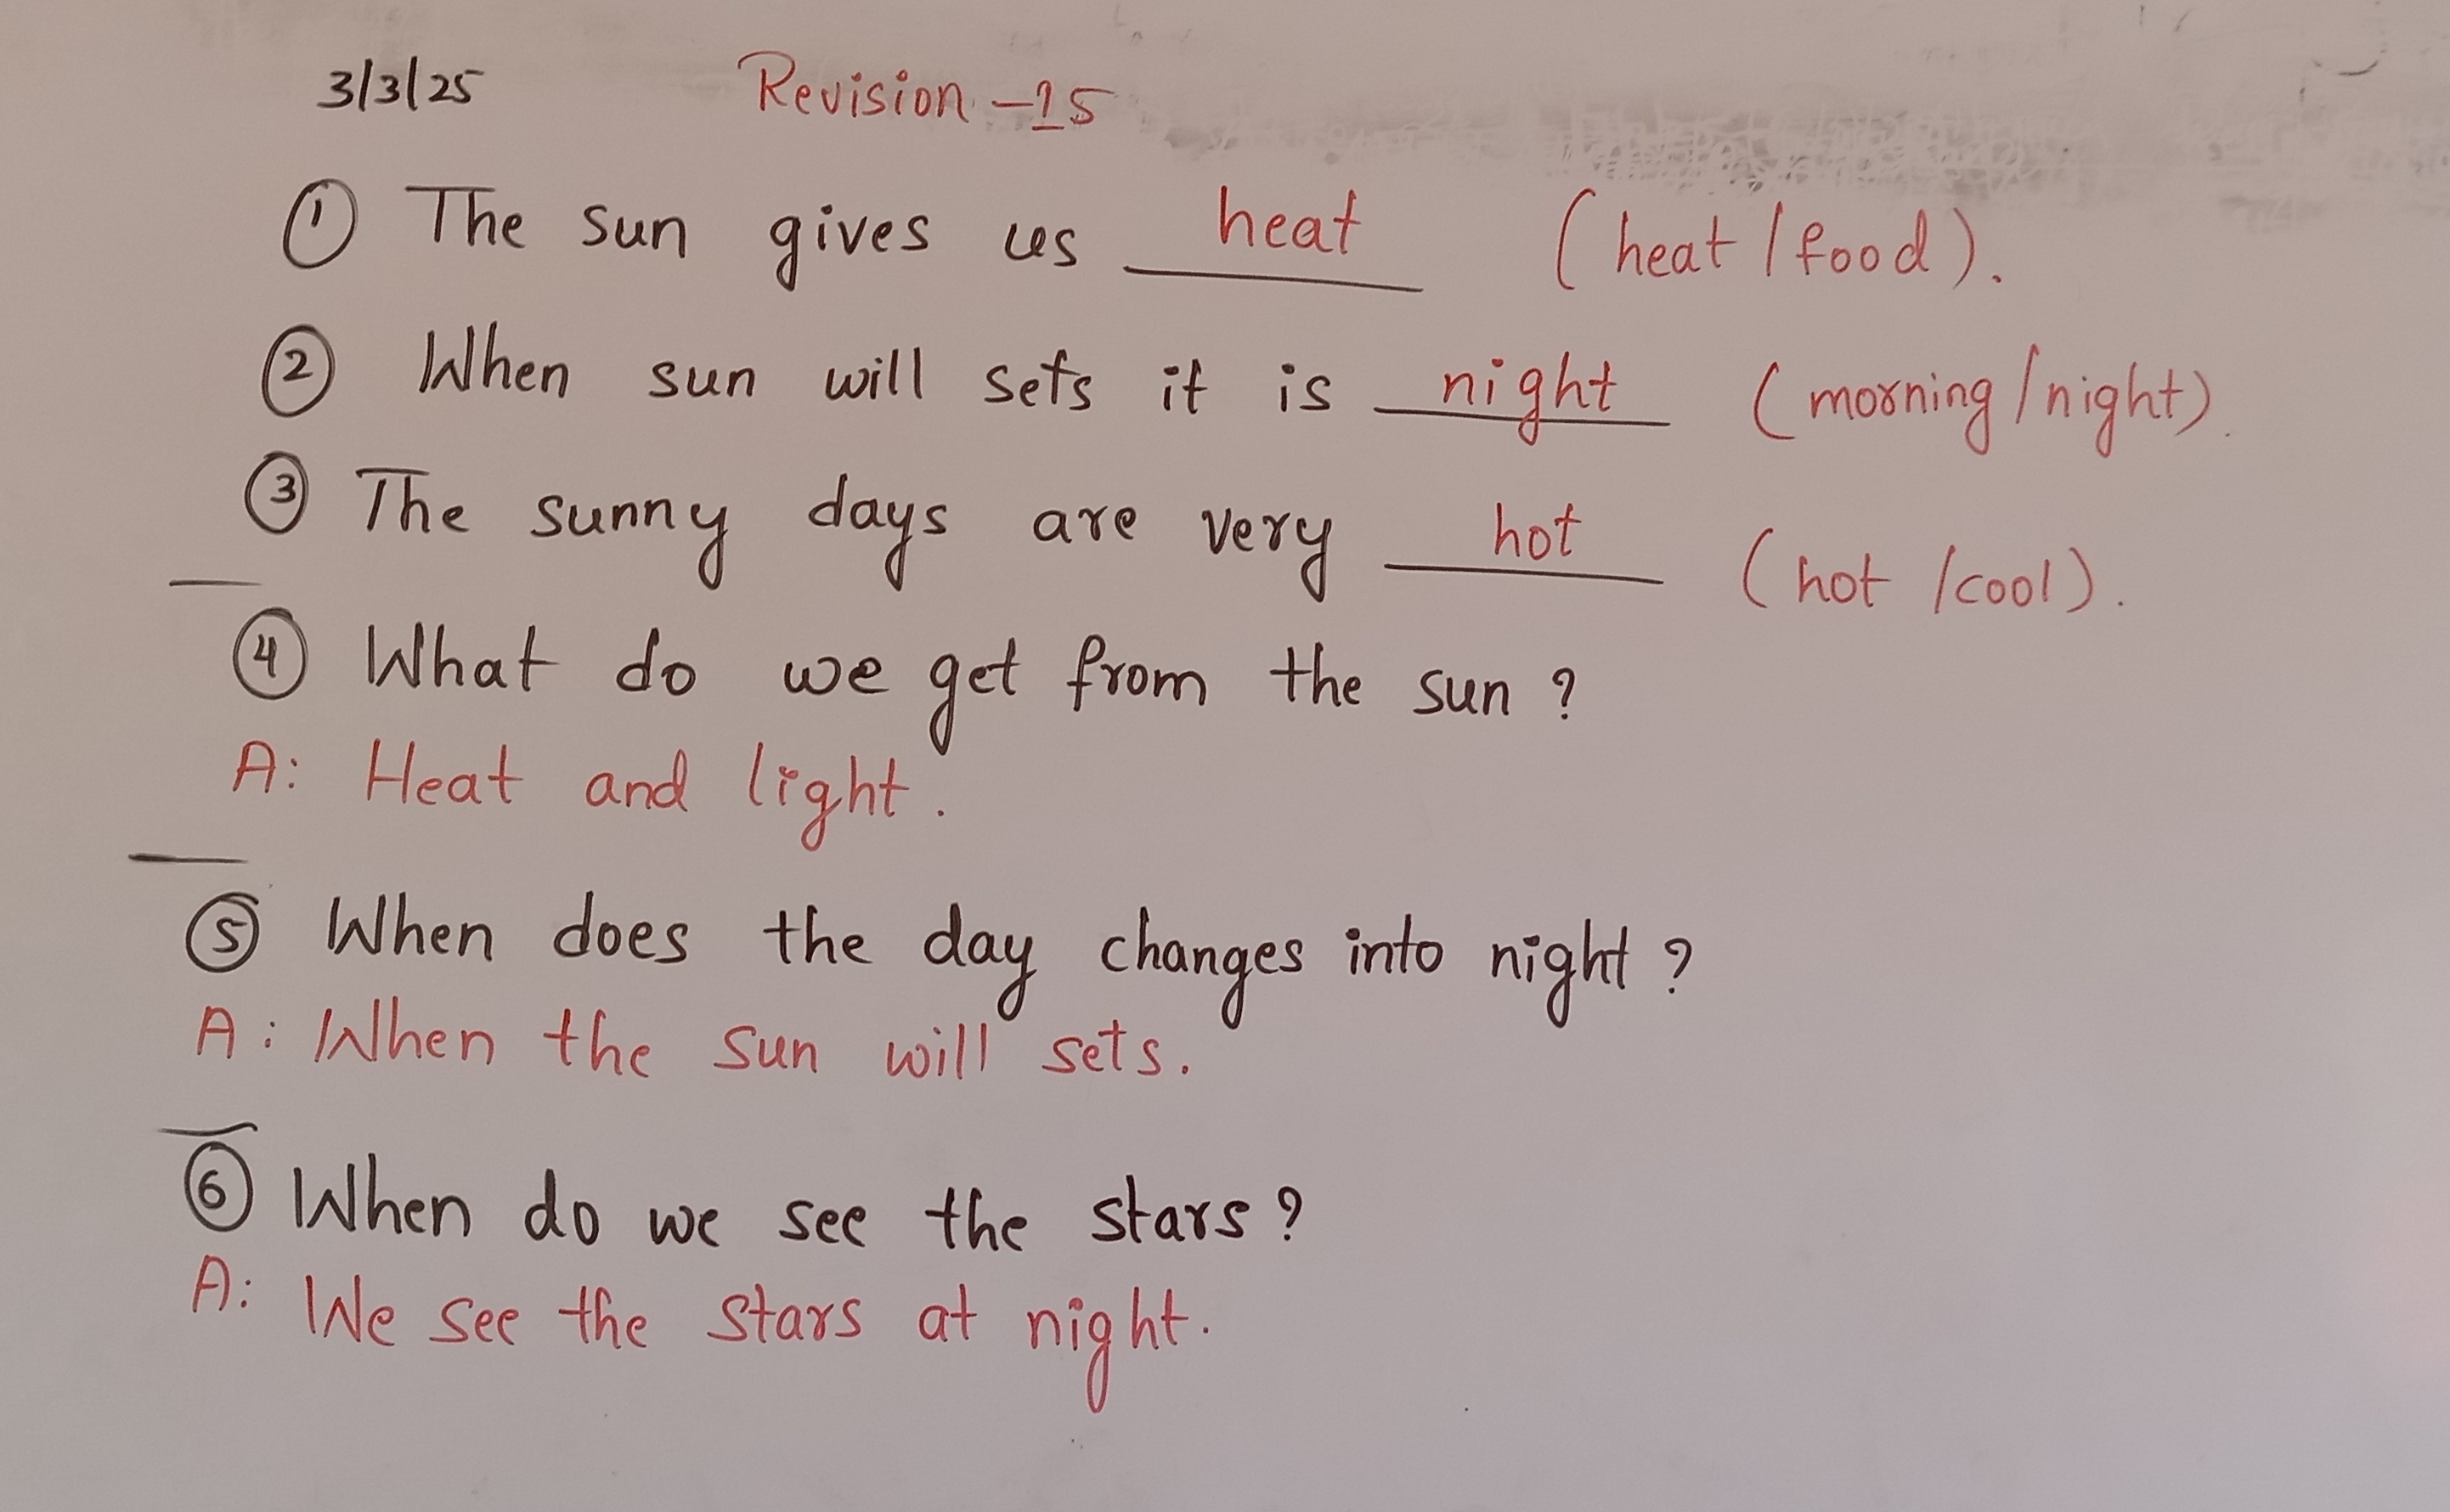 3/3/25 Revision -15
① The sun gives us heat (heat / food).
② When sun will sets it is night (morning / night).
③ The sunny days are very hot (hot / cool).
④ What do we get from the sun ?
A: Heat and light.
⑤ When does the day changes into night ?
A: When the sun will sets.
⑥ When do we see the stars ?
A: We see the stars at night.